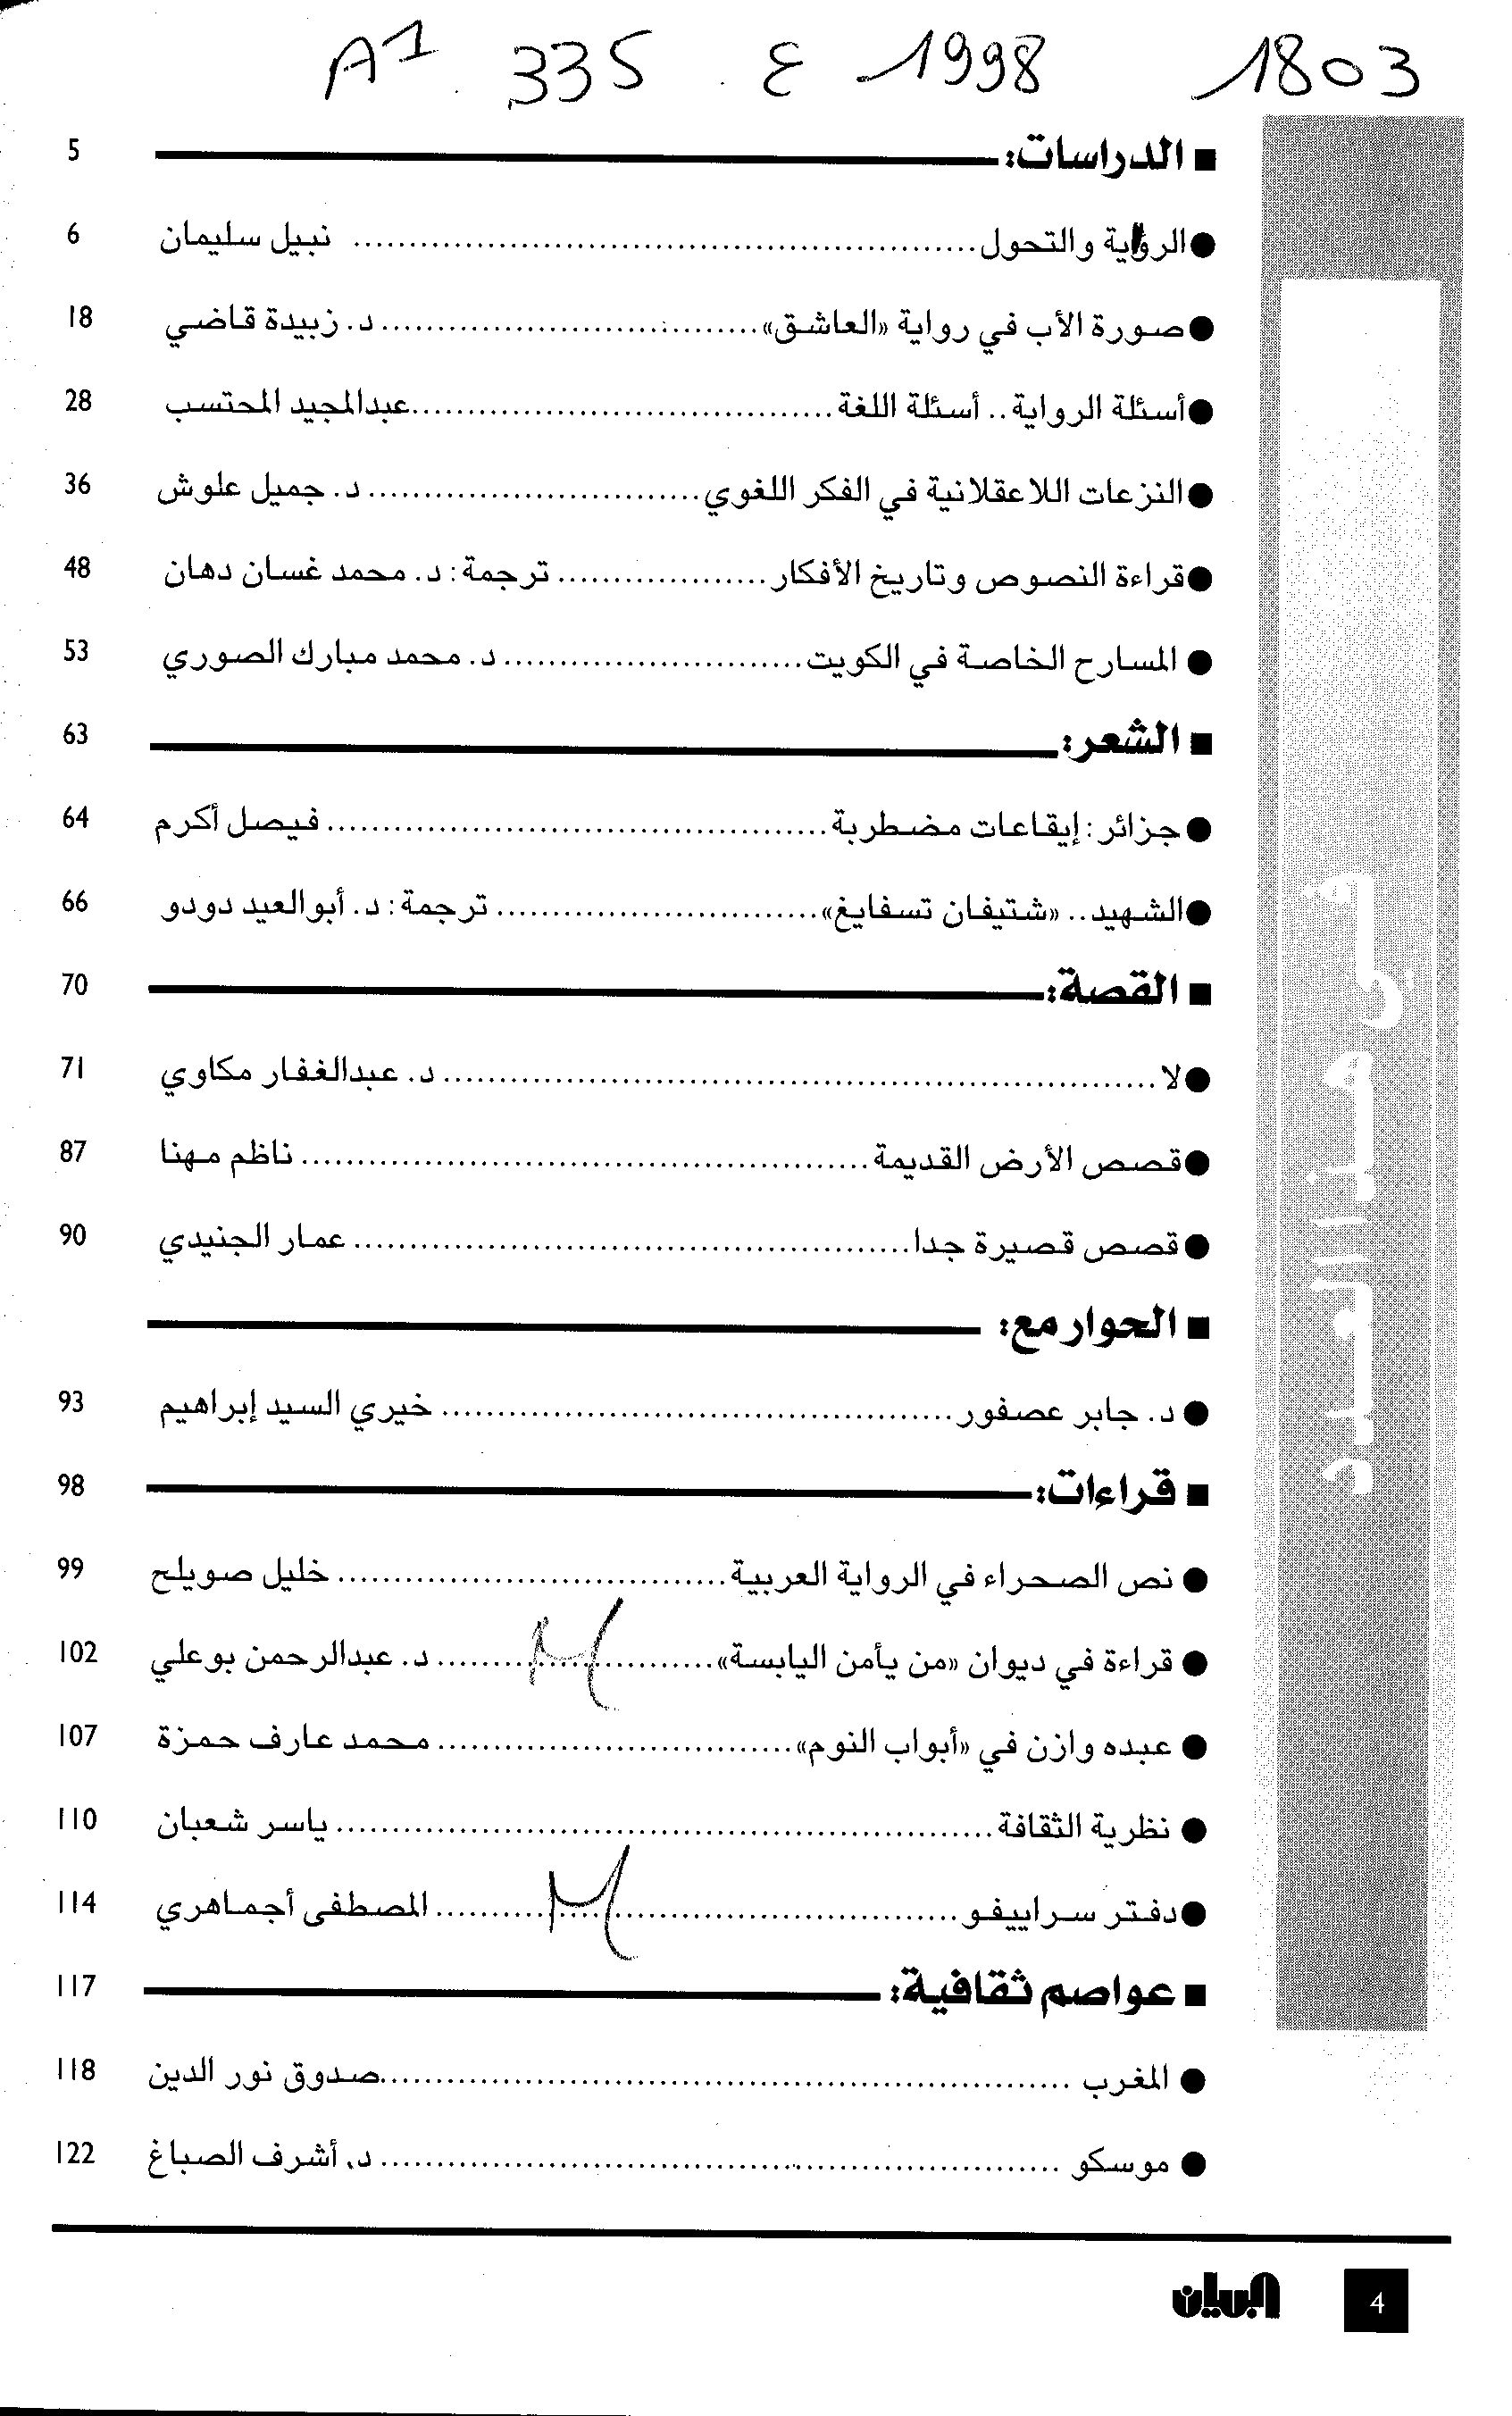 A1 335 . ع - 1998 1803
■ الدراسات: 5
● الرواية والتحول ........ نبيل سليمان 6
● صورة الأب في رواية «العاشق» ........ د. زبيدة قاضي 18
● أسئلة الرواية .. أسئلة اللغة ........ عبدالمجيد المحتسب 28
● النزعات اللاعقلانية في الفكر اللغوي ........ د. جميل علوش 36
● قراءة النصوص وتاريخ الأفكار ........ ترجمة: د. محمد غسان دهان 48
● المسارح الخاصة في الكويت ........ د. محمد مبارك الصوري 53
■ الشعر: 63
● جزائر: إيقاعات مضطربة ........ فيصل أكرم 64
● الشهيد .. «شتيفان تسفايغ» ........ ترجمة: د. أبوالعيد دودو 66
■ القصة: 70
● لا ........ د. عبدالغفار مكاوي 71
● قصص الأرض القديمة ........ ناظم مهنا 87
● قصص قصيرة جدا ........ عمار الجنيدي 90
■ الحوار مع:
● د. جابر عصفور ........ خيري السيد إبراهيم 93
■ قراءات: 98
● نص الصحراء في الرواية العربية ........ خليل صويلح 99
● قراءة في ديوان «من يأمن اليابسة» ........ د. عبدالرحمن بوعلي 102
● عبده وازن في «أبواب النوم» ........ محمد عارف حمزة 107
● نظرية الثقافة ........ ياسر شعبان 110
● دفتر سراييفو ........ المصطفى أجماهري 114
■ عواصم ثقافية: 117
● المغرب ........ صدوق نور الدين 118
● موسكو ........ د. أشرف الصباغ 122
البيان 4